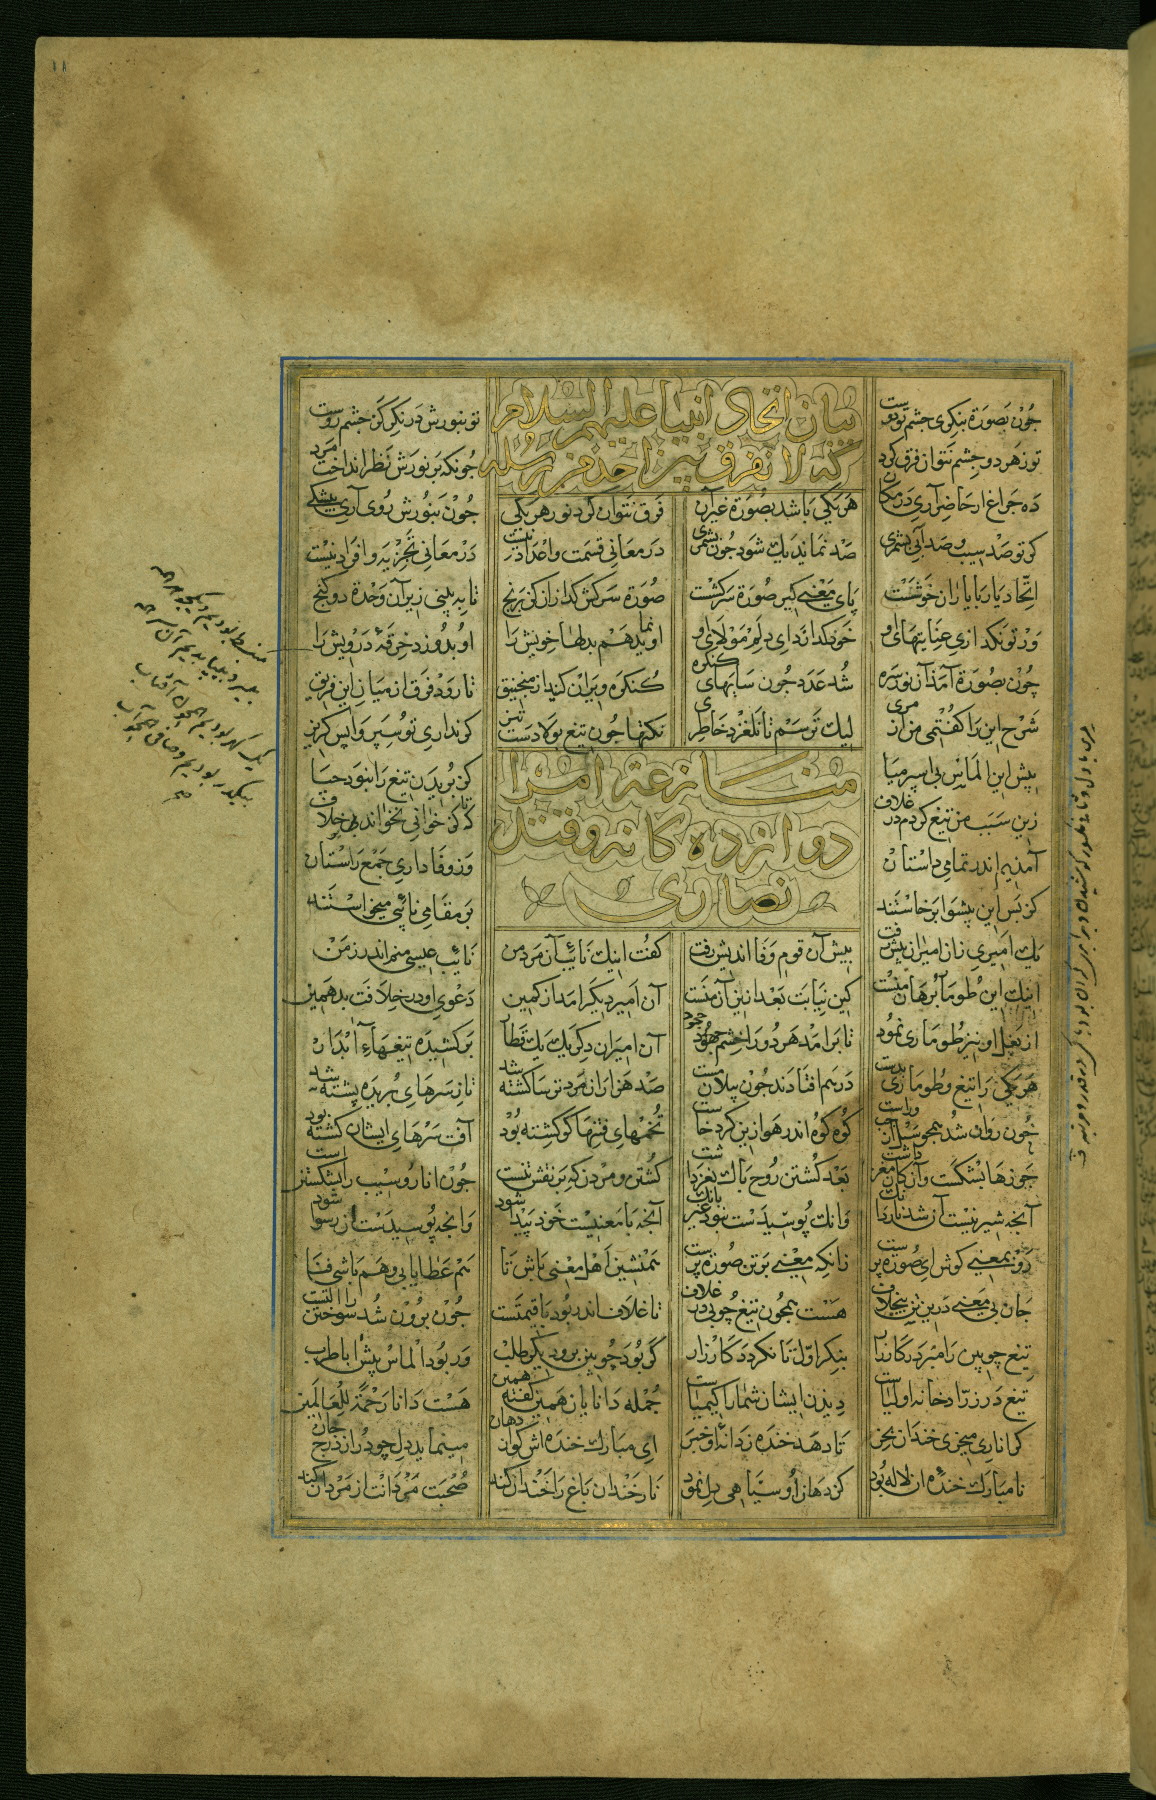 ١٨
چون بصورة بنکری جشم تو دوست
تو بنورش درنکر کز جشم روست
بیان اتحاد انبیا علیهم السلام
که لا نفرق بین احد من رسله
نور هر دو جشم نتوان فرق کرد
جونکه بر نورش نظر انداخت مرد
ده جراغ ار حاضر آری در مکان هر یکی باشد بصورة غیر آن فرق نتوان کرد نور هر یکی جون بنورش روی آری بیشکی
کر تو صد سیب و صد آبی بشمری صد نماند یک شود جون بفشری در معانی قسمت و اعداد نیست در معانی تجزیه و افراد نیست
اتحاد یار با یاران خوشست پای معنی کیر صورة سرکشست صورة سرکش کدازان کن برنج تا ببینی زیر آن وحدة دو کنج
ور تو نکدازی عنایتهای او خود کدازد ای دلم مولای او او نماید هم بدلها خویش را او بدوزد خرقهٔ درویش را
منبسط بودیم و یکجوهر همه
بی سر و بی پا بدیم آن سر همه
یک کهر بودیم همچون آفتاب
بی کره بودیم و صافی همچو آب
صح
چون بصورة آمد آن نور سره شد عدد جون سایهای کنکره کنکره ویران کنید از منجنیق تا رود فرق از میان این فریق
شرح این را کفتمی من از مری لیک ترسم تا نلغزد خاطری نکتها جون تیغ پولادست تیز کر نداری تو سپر واپس کریز
پیش این الماس بی اسپر میا کز بریدن تیغ را نبود حیا
زین سبب من تیغ کردم در غلاف تا که کژ خوانی نخواند بر خلاف
آمدیم اندر تمامی داستان وز وفاداری جمع راستان
کز پس این پیشوا برخاستند بر مقامش نائبی میخواستند
منازعة امرا
دوازده کانه و قتل
نصاری
یک امیری زان امیران پیش رفت پیش آن قوم وفا اندیش رفت کفت اینک نایب آن مرد من نایب عیسی منم اندر زمن
اینک این طومار برهان منست کین نیابت بعد ازین آن منست آن امیر دیکر آمد از کمین دعوی او در خلافت بد همین
از بغل او نیز طوماری نمود تا برآمد هر دو را خشم جهود آن امیران دکر یک یک قطار برکشیده تیغهای آبدار
هر یکی را تیغ و طوماری بدست درهم افتادند جون پیلان مست صد هزاران مرد ترسا کشته شد تا ز سرهای بریده پشته شد
خون روان شد همجو سیل از جپ و راست کوه کوه اندر هوا زین کرد خاست تخمهای فتنها کو کشته بود آفت سرهای ایشان کشته بود
جوزها بشکست و آن کان مغز داشت بعد کشتن روح پاک نغز داشت کشتن و مردن که بر نقش تنست جون انار و سیب را بشکستنست
آنجه شیرینیست آن شد ناردانک وانک پوسیدست نبود غیر بانک آنجه با معنیست خود پیدا شود وانجه پوسیدست آن رسوا شود
رو بمعنی کوش ای صورة پرست زانکه معنی بر تن صورة پرست همنشین اهل معنی باش تا هم عطا یابی و هم باشی فتا
جان بی معنی درین تن بیخلاف هست همجون تیغ چوبی در غلاف تا غلاف اندر بود با قیمتست جون برون شد سوختن را آلتست
تیغ چوبین را مبر در کارزار بنکر اول تا نکردد کار زار کر بود چوبین برو دیکر طلب ور بود الماس پیش آ با طرب
تیغ در زرادخانه اولیاست دیدن ایشان شما را کیمیاست جمله دانایان همین کفته همین هست دانا رحمة للعالمین
کر اناری میخری خندان بخر تا دهد خنده ز دانهٔ او خبر ای مبارک خنده اش کو از دهان مینماید دل چو در از درج جان
نامبارک خندهٔ آن لاله بود کز دهان او سیاهی دل نمود نار خندان باغ را خندان کند صحبت مردانت از مردان کند